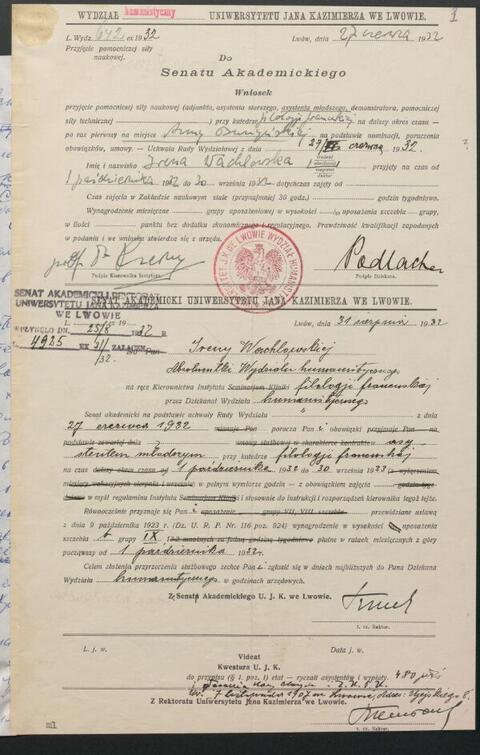 WYDZIAŁ humanistyczny UNIWERSYTETU JANA KAZIMIERZA WE LWOWIE.
1
L. Wydz. 642 ex 1932
Lwów, dnia 27 czerwca 1932
Przyjęcie pomocniczej siły
naukowej.
Do
Senatu Akademickiego
Wniosek
przyjęcie pomocniczej siły naukowej (adjunkta, asystenta starszego, asystenta młodszego, demonstratora, pomocniczej
siły technicznej) przy katedrze filologji francuskiej na dalszy okres czasu —
po raz pierwszy na miejsce Anny na podstawie nominacji, poruczenia
obowiązków, umowy. — Uchwała Rady Wydziałowej z dnia 27 czerwca 1932.
Imię i nazwisko Irena Wachlowska przyjęty na czas od
1 października 1932 do 30 września 1933 dotychczas zajęty od
Czas zajęcia w Zakładzie naukowym stale (przynajmniej 30 godz.) godzin tygodniowo.
Wynagrodzenie miesięczne grupy uposażeniowej w wysokości uposażenia szczebla grupy,
w ilości punktu bez dodatku ekonomicznego i regulacyjnego. Prawdziwość kwalifikacji zapodanych
w podaniu i we wniosku stwierdza się z urzędu.
Podlacha
Podpis Kierownika Instytutu.
Podpis Dziekana.
SENAT AKADEMICKI
UNIWERSYTETU JANA KAZIMIERZA
WE LWOWIE
WPŁYNĘŁO DN. 25/8 1932
4925
ZAŁĄCZN.
SENAT AKADEMICKI UNIWERSYTETU JANA KAZIMIERZA WE LWOWIE.
L. ex 19
Lwów, dnia 31 sierpnia 1932
Do Pan
Ireny Wachlowskiej
Absolwentki Wydziału humanistycznego
na ręce Kierownictwa Instytutu Seminarjum Kliniki filologji francuskiej
przez Dziekanat Wydziału humanistycznego
Senat akademicki na podstawie uchwały Rady Wydziału z dnia
27 czerwca 1932 porucza Pan i obowiązki przyjmuje Pan
podstawie umowy służbowej w charakterze kontraktow. asy
stentem młodszym przy katedrze filologji francuskiej
na czas od 1 października 1932 do 30 września 1933
wrześniu w pełnym wymiarze godzin — z obowiązkiem zajęć
w myśl regulaminu Instytutu Seminarjum Kliniki i stosownie do instrukcji i rozporządzeń kierownika tegoż tejże.
Równocześnie przyznaje się Pan i uposażenie grupy VII, VIII szczebla
z dnia 9 października 1923 r. (Dz. U. R. P. Nr. 116 poz. 924) wynagrodzenie w wysokości uposażenia
szczebla b grupy IX płatne w ratach miesięcznych z góry
począwszy od 1 października 1932 r.
Celem złożenia przyrzeczenia służbowego zechce Pan i zgłosić się w dniach najbliższych do Pana Dziekana
Wydziału humanistycznego w godzinach urzędowych.
Z Senatu Akademickiego U. J. K. we Lwowie.
t. cz. Rektor.
L. j. w.
Data j. w.
Videat
Kwestura U. J. K.
do przypisu (§ 1. poz. 1) etat — ryczałt asystenty i wypłaty 480
ur. 7 listopada 1907 we Lwowie, Adres:
Z Rektoratu Uniwersytetu Jana Kazimierza we Lwowie.
t. cz. Rektor.
m1